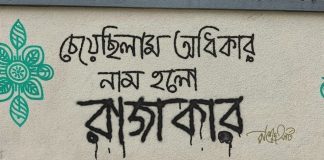 চেয়েছিলাম অধিকার
নাম হলো
রাজাকার